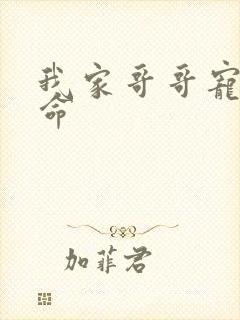 我家哥哥宠
命
加菲君